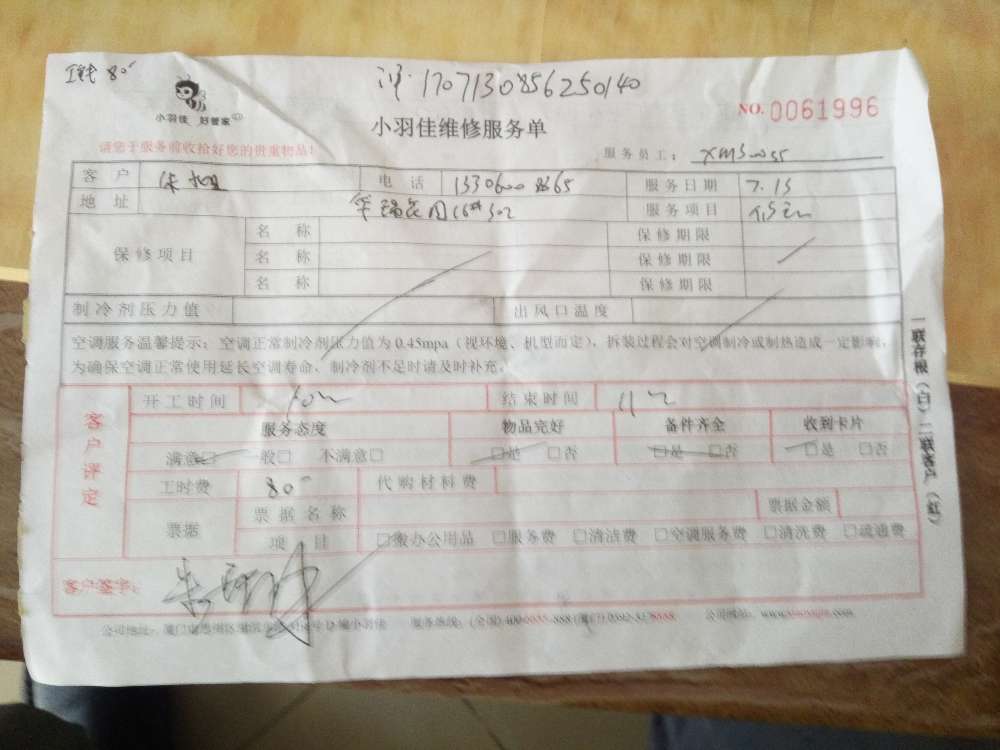 80
1707130856250140
小羽佳 好管家
NO. 0061996
小羽佳维修服务单
请您于服务前收拾好您的贵重物品!
服务员工:
客户 电话 服务日期 7.13
地址 华瑞花园16#302 服务项目
保修项目 名称 保修期限
名称 保修期限
名称 保修期限
制冷剂压力值 出风口温度
空调服务温馨提示:空调正常制冷剂压力值为0.45mpa(视环境、机型而定),拆装过程会对空调制冷或制热造成一定影响,
为确保空调正常使用延长空调寿命,制冷剂不足时请及时补充。
客户评定
开工时间 结束时间
服务态度 物品完好 备件齐全 收到卡片
满意□ 一般□ 不满意□ □是 □否 □是 □否 □是 □否
工时费 80 代购材料费
票据 票据名称 票据金额
项目 □办公用品 □服务费 □清洁费 □空调服务费 □清洗费 □疏通费
客户签字:
公司地址: 服务热线: 公司网站:
一联存根(白) 二联客户(红)